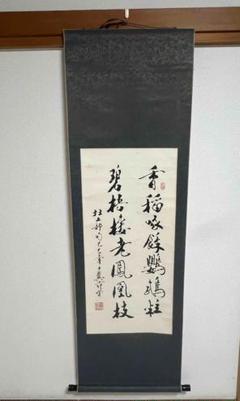 香稻啄餘鸚鵡粒
碧梧棲老鳳凰枝
杜工部句